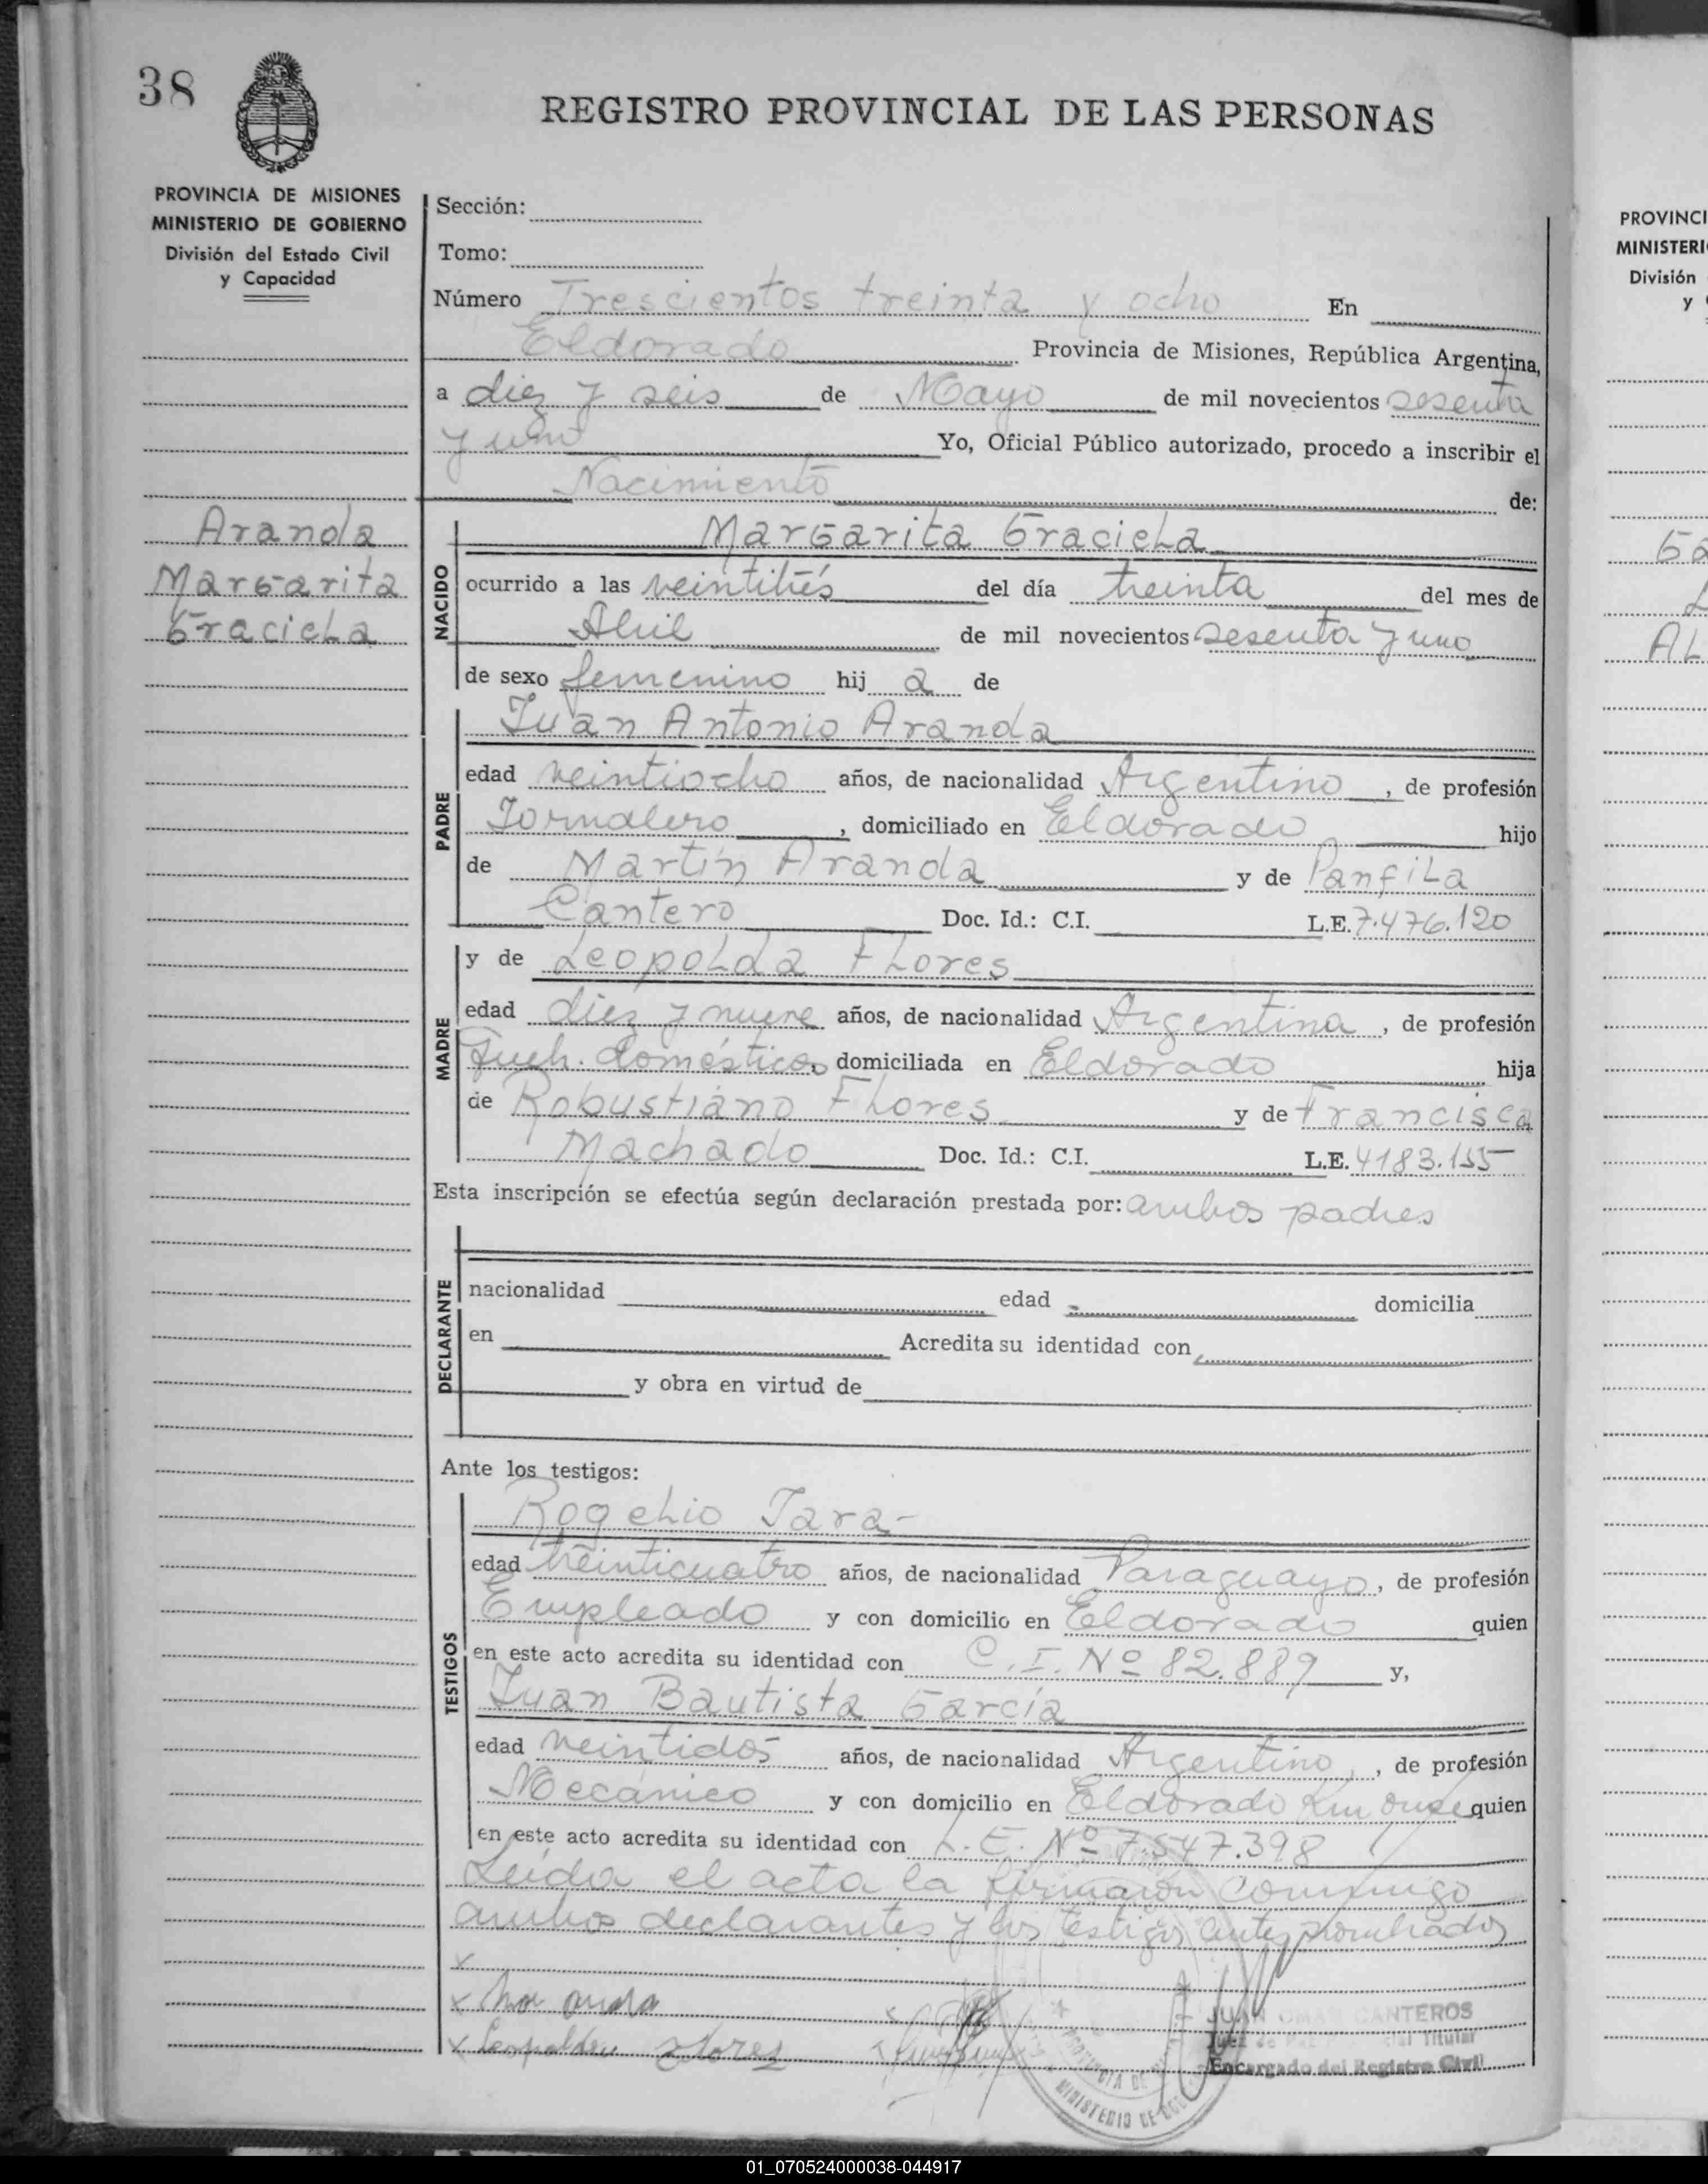 38
REGISTRO PROVINCIAL DE LAS PERSONAS
PROVINCIA DE MISIONES
MINISTERIO DE GOBIERNO
División del Estado Civil
y Capacidad
Sección:
Tomo:
Número Trescientos treinta y ocho En
Eldorado Provincia de Misiones, República Argentina,
a diez y seis de Mayo de mil novecientos sesenta
y uno Yo, Oficial Público autorizado, procedo a inscribir el
Nacimiento de:
Aranda
Margarita
Graciela
NACIDO
Margarita Graciela
ocurrido a las veintitrés del día treinta del mes de
Abril de mil novecientos sesenta y uno
de sexo femenino hij a de
PADRE
Juan Antonio Aranda
edad veintiocho años, de nacionalidad Argentino, de profesión
Jornalero, domiciliado en Eldorado hijo
de Martín Aranda y de Panfila
Cantero Doc. Id.: C.I. L.E. 7.476.120
MADRE
y de Leopolda Flores
edad diez y nueve años, de nacionalidad Argentina, de profesión
Queh. domésticos, domiciliada en Eldorado hija
de Robustiano Flores y de Francisca
Machado Doc. Id.: C.I. L.E. 4183.155
Esta inscripción se efectúa según declaración prestada por: ambos padres
DECLARANTE
nacionalidad edad domicilia
en Acredita su identidad con
y obra en virtud de
Ante los testigos:
TESTIGOS
Rogelio Jara
edad veinticuatro años, de nacionalidad Paraguayo, de profesión
Empleado y con domicilio en Eldorado quien
en este acto acredita su identidad con C.I. Nº 82.889 y,
Juan Bautista García
edad veintidos años, de nacionalidad Argentino, de profesión
Mecánico y con domicilio en Eldorado Km once quien
en este acto acredita su identidad con L.E. Nº 7.547.398
Leída el acta la firmaron conmigo
ambos declarantes y los testigos antes nombrados
x
x
x Leopolda Flores
JUAN OMAR CANTEROS
Juez de Titular
Encargado del Registro Civil
MINISTERIO DE
PROVINCI
MINISTERI
División
y
AL
01_070524000038-044917